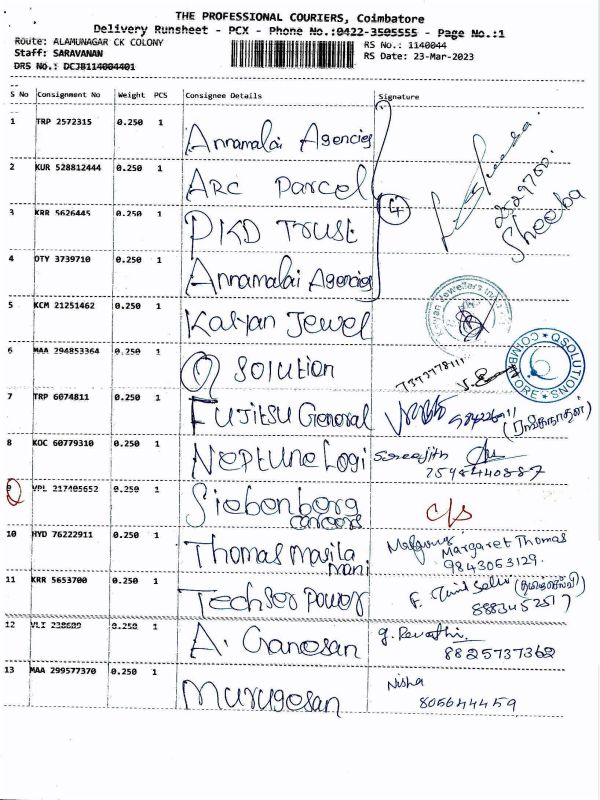 THE PROFESSIONAL COURIERS, Coimbatore
Delivery Runsheet - PCX - Phone No.:0422-3505555 - Page No.:1
Route: ALAMUNAGAR CK COLONY
RS No.: 1140044
Staff: SARAVANAN
RS Date: 23-Mar-2023
DRS No.: DCJB114004401
S No Consignment No Weight PCS Consignee Details Signature
1 TRP 2572315 0.250 1 Annamalai Agencies
2 KUR 528812444 0.250 1 ARC Parcel
4
Sheeba
3 KRR 5626445 0.250 1 PKD Trust
4 OTY 3739710 0.250 1 Annamalai Agencies
5 KCM 21251462 0.250 1 Kalyan Jewel
6 MAA 294853364 0.250 1 Q Solution
QSOLUTIONS COIMBATORE
7373778111
7 TRP 6074811 0.250 1 Fujitsu General
(ரங்கநாதன்)
8 KOC 60779310 0.250 1 Neptune Logi Sreejith
7598440887
9 VPL 217405652 0.250 1 Siebenberg c/s
careers
10 HYD 76222911 0.250 1 Thomas Masila Margaret Thomas
mani 9843053129.
11 KRR 5653700 0.250 1 Techser power F. Tamil Selvi (தமிழ்செல்வி)
12 VLI 238689 0.250 1 A. Ganesan g. Revathi
8825737362
13 MAA 299577370 0.250 1 Murugesan Nisha
805644459